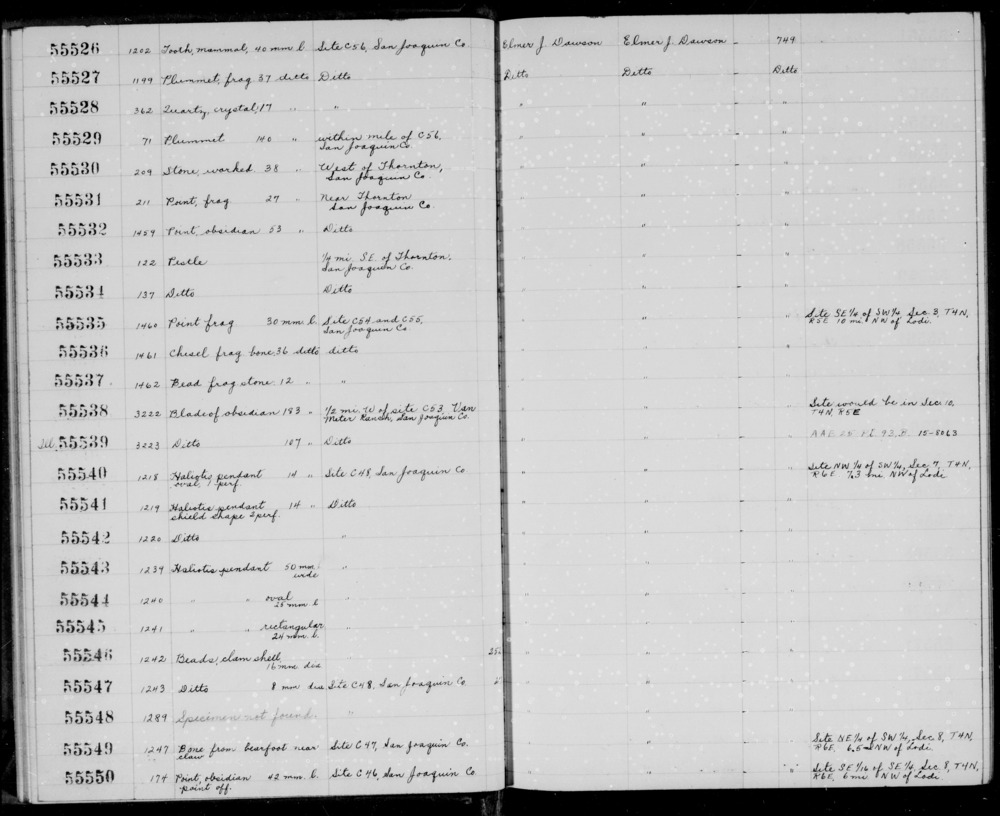 55526 1202 Tooth, mammal, 40 mm l Site C56, San Joaquin Co Elmer J. Dawson Elmer J. Dawson - 749
55527 1199 Plummet, frag 37 ditto Ditto Ditto Ditto - Ditto
55528 362 Quartz, crystal, 17 " " " " - "
55529 71 Plummet 140 " within mile of C56, " " - "
San Joaquin Co.
55530 209 Stone, worked 38 " West of Thornton, " " - "
San Joaquin Co.
55531 211 Point, frag 27 " Near Thornton " " - "
San Joaquin Co.
55532 1459 Point, obsidian 53 " Ditto " " - "
55533 122 Pestle 1/4 mi. S.E. of Thornton. " " - "
San Joaquin Co.
55534 137 Ditto Ditto " " - "
55535 1460 Point frag 30 mm. l. Site C54 and C55, " " - " Site SE 1/4 of SW 1/4, Sec. 3, T4N,
San Joaquin Co R5E 10 mi NW of Lodi.
55536 1461 Chisel frag bone, 36 ditto ditto " " - "
55537 1462 Bead frag stone. 12 " " " " - "
55538 3222 Blade of obsidian 183 " 1/2 mi. W of site C53, Van " " - " Site would be in Sec 10,
Meter Ranch, San Joaquin Co. T4N, R5E
55539 3223 Ditto 107 " Ditto " " - " 15-8063
55540 1218 Haliotis pendant 14 " Site C48, San Joaquin Co " " - " Site NW 1/4 of SW 1/4, Sec. 7, T4N,
oval, 1 perf. R6E 7.3 mi. NW of Lodi
55541 1219 Haliotis pendant 14 " Ditto " " - "
shield shape 2 perf.
55542 1220 Ditto " " " - "
55543 1239 Haliotis pendant 50 mm. " " " - "
wide
55544 1240 " " oval " " " - "
25 mm l
55545 1241 " " rectangular " " " - "
24 mm l.
55546 1242 Beads, clam shell, " " " - "
16 mm dia
55547 1243 Ditto 8 mm dia Site C48, San Joaquin Co. " " - "
55548 1289 Specimen not found. " " " - "
55549 1247 Bone from bearfoot near Site C47, San Joaquin Co. " " - " Site NE 1/4 of SW 1/4, Sec 8, T4N,
claw R6E, 6.5 NW of Lodi
55550 174 Point, obsidian 42 mm. l. Site C46, San Joaquin Co " " - " Site SE 1/16 of SE 1/4, Sec 8, T4N,
point off. R6E, 6 mi NW of Lodi.